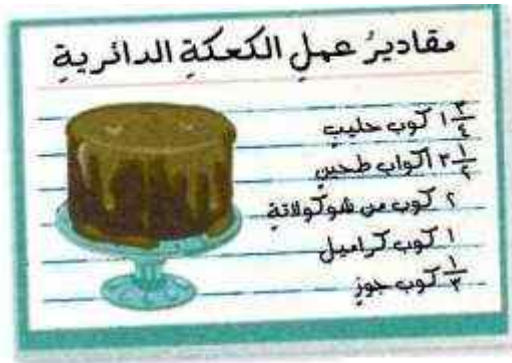 مقاديرُ عملِ الكعكةِ الدائريةِ
١ ٣/٤ كوب حليبٍ
٣ ١/٢ أكواب طحينٍ
٢ كوب من شوكولاتة
١ كوب كراميل
١/٣ كوب جوزٍ